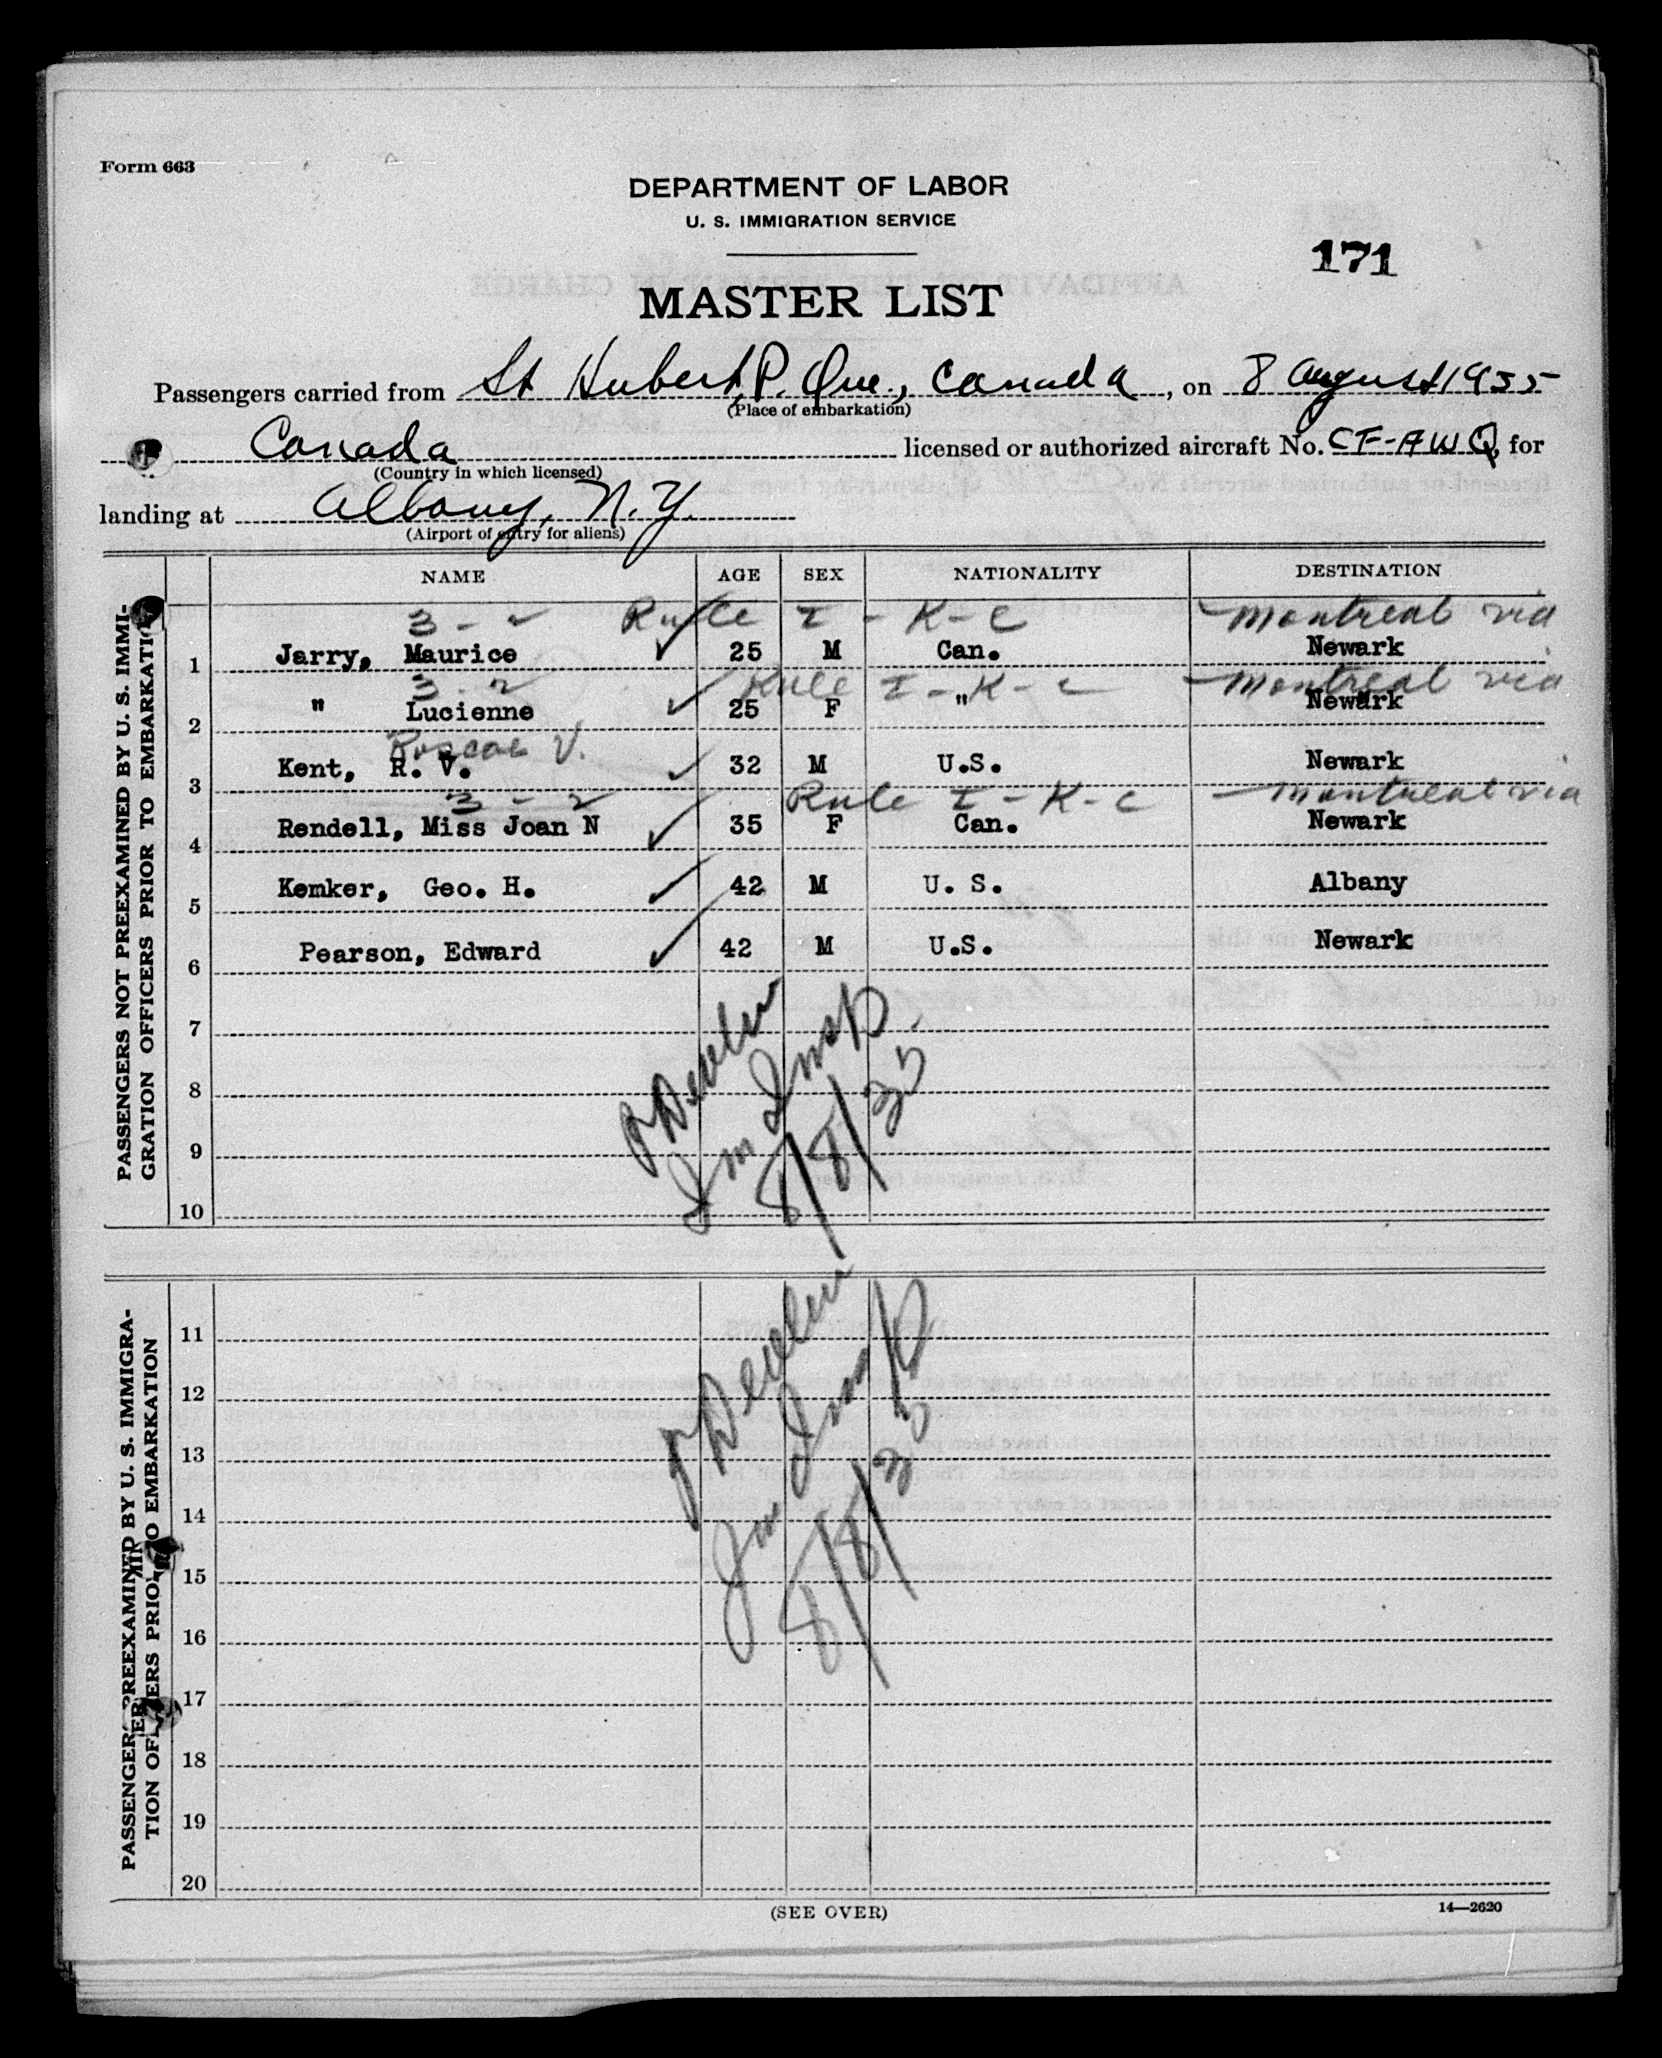 Form 663
DEPARTMENT OF LABOR
U. S. IMMIGRATION SERVICE
171
MASTER LIST
Passengers carried from St Hubert, P. Que., Canada, on 8 August 1935
(Place of embarkation)
Canada licensed or authorized aircraft No. CF-AWQ, for
(Country in which licensed)
landing at Albany, N.Y.
(Airport of entry for aliens)
NAME AGE SEX NATIONALITY DESTINATION
PASSENGERS NOT PREEXAMINED BY U. S. IMMI-
GRATION OFFICERS PRIOR TO EMBARKATION
3 - 2 Rule I - K - C - Montreal via
1 Jarry, Maurice ✓ 25 M Can. Newark
3 - 2 Rule I - K - C - Montreal via
2 " Lucienne ✓ 25 F " Newark
Roscoe V.
3 Kent, R. V. ✓ 32 M U.S. Newark
3 - 2 Rule I - K - C - Montreal via
4 Rendell, Miss Joan N ✓ 35 F Can. Newark
5 Kemker, Geo. H. ✓ 42 M U. S. Albany
6 Pearson, Edward ✓ 42 M U.S. Newark
7
8
9
10
Devlin
Im Insp.
8/8/35
PASSENGERS PREEXAMINED BY U. S. IMMIGRA-
TION OFFICERS PRIOR TO EMBARKATION
11
12
13
14
15
16
17
18
19
20
Devlin
Im Insp
8/8/35
(SEE OVER)
14—2620